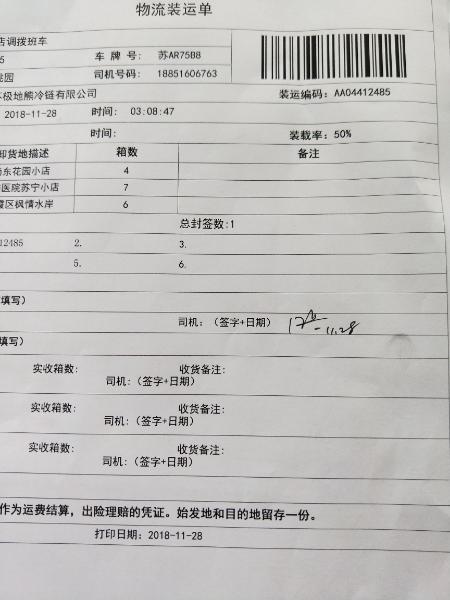 物流装运单
店调拨班车
5 车 牌 号: 苏AR75B8
花园 司机号码: 18851606763
极地熊冷链有限公司 装运编码: AA04412485
2018-11-28 时间: 03:08:47
时间: 装载率: 50%
卸货地描述 箱数 备注
东花园小店 4
医院苏宁小店 7
霞区枫情水岸 6
总封签数:1
12485 2. 3.
5. 6.
填写)
司机: (签字+日期) 11.28
填写)
实收箱数: 收货备注:
司机: (签字+日期)
实收箱数: 收货备注:
司机: (签字+日期)
实收箱数: 收货备注:
司机: (签字+日期)
作为运费结算, 出险理赔的凭证。始发地和目的地留存一份。
打印日期: 2018-11-28